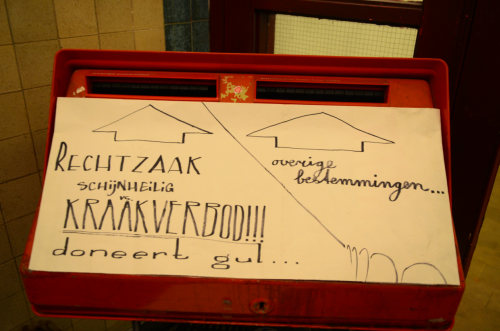 RECHTZAAK
SCHIJNHEILIG
vs
KRAAKVERBOD!!!
doneert gul...
overige
bestemmingen...